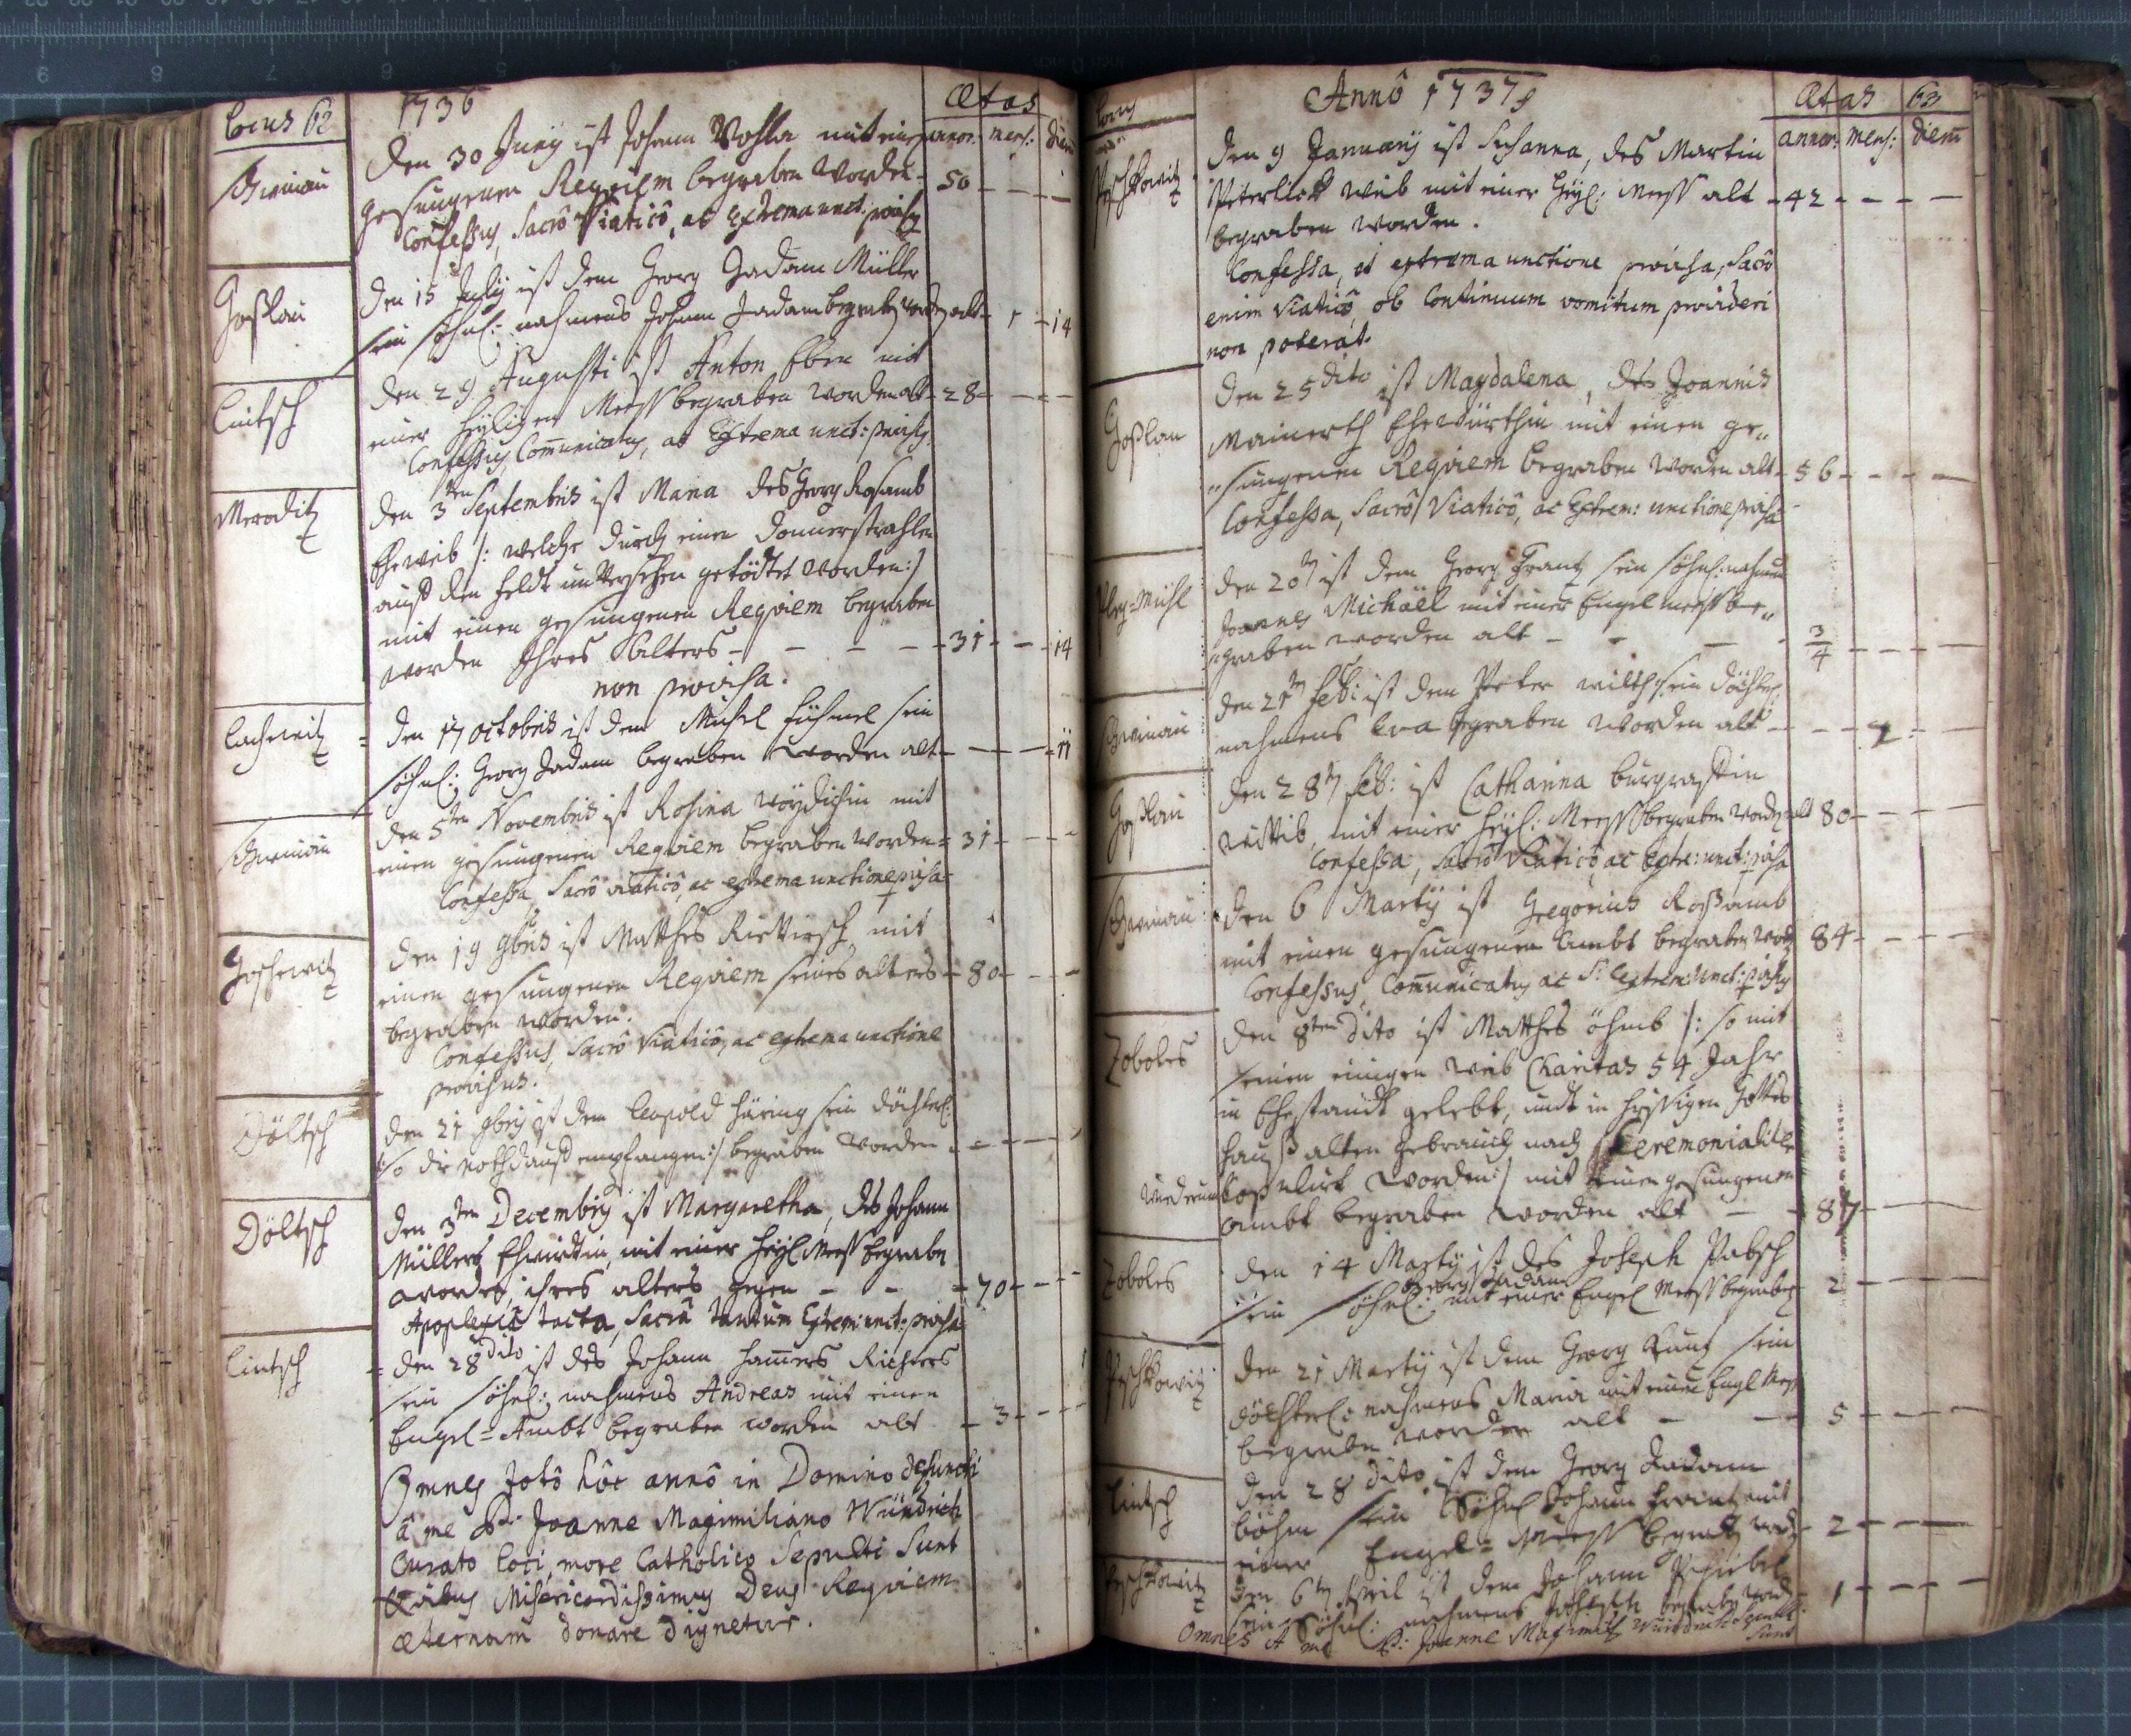 Locus 62
1736
Ætas
annor. mens: diem
Den 30 Juny ist Johann Vohla mit einen
gesungenen Requiem begraben worden - 50 - - -
Confessus, Sacrô Viaticô, ac Extrema unct: provisq
Goßlau
Den 15 July ist dem Georg Hadam Müller
sein söhnl: nahmens Johann Jadam begraben worden alt - 1 - 14
Lintsch
Den 29 Augusti ist Anton Eben mit
einer Heyligen Meeß begraben worden alt - 28 - - -
Confessus, Communicatus, ac Extrema unct: provisq
Meroditz
Den 3ten Septembris ist Maria des Georg Rosamb
Eheweib /: welche durch einen Donnerstrahlen
auf den Feldt unversehen getödtet worden :/
mit einen gesungenen Requiem begraben
worden Ihres Alters - - - - 31 - - 14
non provisa.
Lachowitz
Den 17 Octobris ist dem Michel sein
söhnl: Georg Jadam begraben worden alt - - - 11
Den 5ten Novembris ist Rosina mit
einen gesungenen Requiem begraben worden - 31 - - -
Confessa, Sacrô viaticô, ac extrema unctione pvisa
Goschowitz
Den 19 9bris ist Matthes mit
einen gesungenen Requiem seines alters - 80 - - -
begraben worden.
Confessus, Sacrô Viaticô, ac extrema unctione
provisus.
Döltsch
Den 21 9bris ist dem Leopold Häring sein döchterl:
/: so die nothdauff empfangen :/ begraben worden - - - -
Döltsch
Den 3ten Decembris ist Margaretha, des Johann
Müllers Ehwirthin, mit einer Heyl Meeß begraben
worden, ihres alters gegen - - - 70 - - -
Apoplexiâ tacta, Sacrâ tantum Extrem: unct: provisa
Lintsch
Den 28 dito ist des Johann Hamers Richters
sein söhnl: nahmens Andreas mit einen
Engel-Ambt begraben worden alt - 3 - - -
Omnes totô hôc annô in Domino defuncti
à me P: Joanne Maximiliano Wündrich
Curato loci, more Catholico Sepulti Sunt
Quibus Misericordissimus Deus Requiem
æternam donare dignetur.
Locus
Annô 1737
Ætas 63
annor: mens: diem
Peschkowitz
Den 9 January ist Susanna, des Martin
Peterlick Weib mit einer Heyl: Meeß alt - 42 - - -
begraben worden.
Confessa, et extrema unctione provisa, Sacrô
enim Viaticô, ob Continuum vomitum provideri
non poterat.
Goßlau
Den 25 dito ist Magdalena, des Joannis
Mainerth Ehewürthin mit einen ge-
sungenen Requiem begraben worden alt - 56 - - -
Confessa, Sacrô Viaticô, ac Extrem: unctione pvisa
Den 20 ist dem Georg Frantz sein söhnl: nahmens
Joannes Michäel mit einer Engel meeß be-
graben worden alt - - - 3/4 - - -
Den 21 Feb: ist dem Peter sein döchterl:
nahmens Eva begraben worden alt - - 7 - -
Goßlau
Den 28 Feb: ist Catharina
Wittib, mit einer Heyl: Meeß begraben worden alt 80 - - -
Confessa, Sacrô Viaticô, ac Extre: unct: pvisa
Den 6 Martij ist Gregorius Roßamb
mit einen gesungenen Ambt begraben word 84 - - -
Confessus, Communicatus ac S: Extrem: Unct: pvisq
Zoboles
Den 8ten dito ist Matthes Öhmb /: so mit
seinen einigen Weib Charitas 54 Jahr
in Ehestandt gelebt, undt in hiesigen Gottes
hauß alten gebrauch nach Ceremonialiter
wiederumb worden :/ mit einen gesungenen
ambt begraben worden alt - - 87 - - -
Zoboles
Den 14 Martij ist des Joseph Pabsch
Georg Jadam
sein söhnl: mit einer Engel Meeß begraben 2 - - -
Peschkowitz
Den 21 Martij ist dem Georg sein
döchterl: nahmens Maria mit einer Engl Meeß
begraben worden alt - - 5 - - -
Lintsch
Den 28 dito ist dem Georg Jadam
Böhm sein Söhnl Johann mit
einer Engel-Meeß begraben word 2 - - -
Peschkowitz
Den 6 April ist dem Johann
sein Söhnl: nahmens Joseph begraben word - 1 - - -
Omnes à me P: Joanne Maximil: Wündrich Sepulti
Sunt